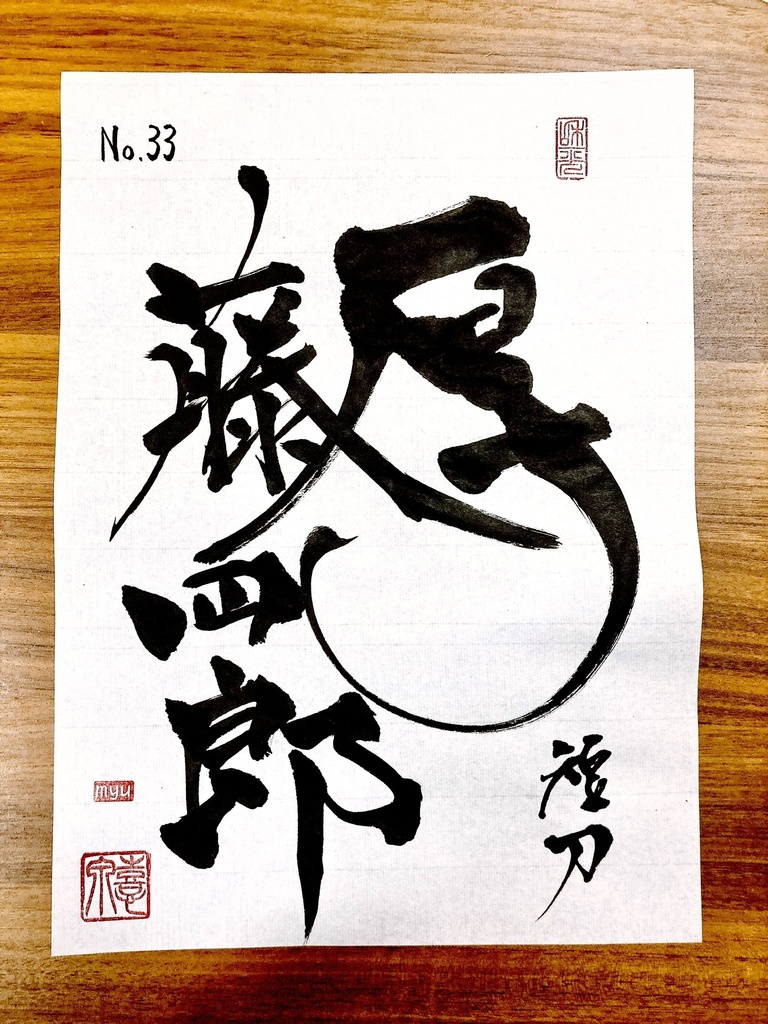 No.33
厚
藤四郎
短刀
myu